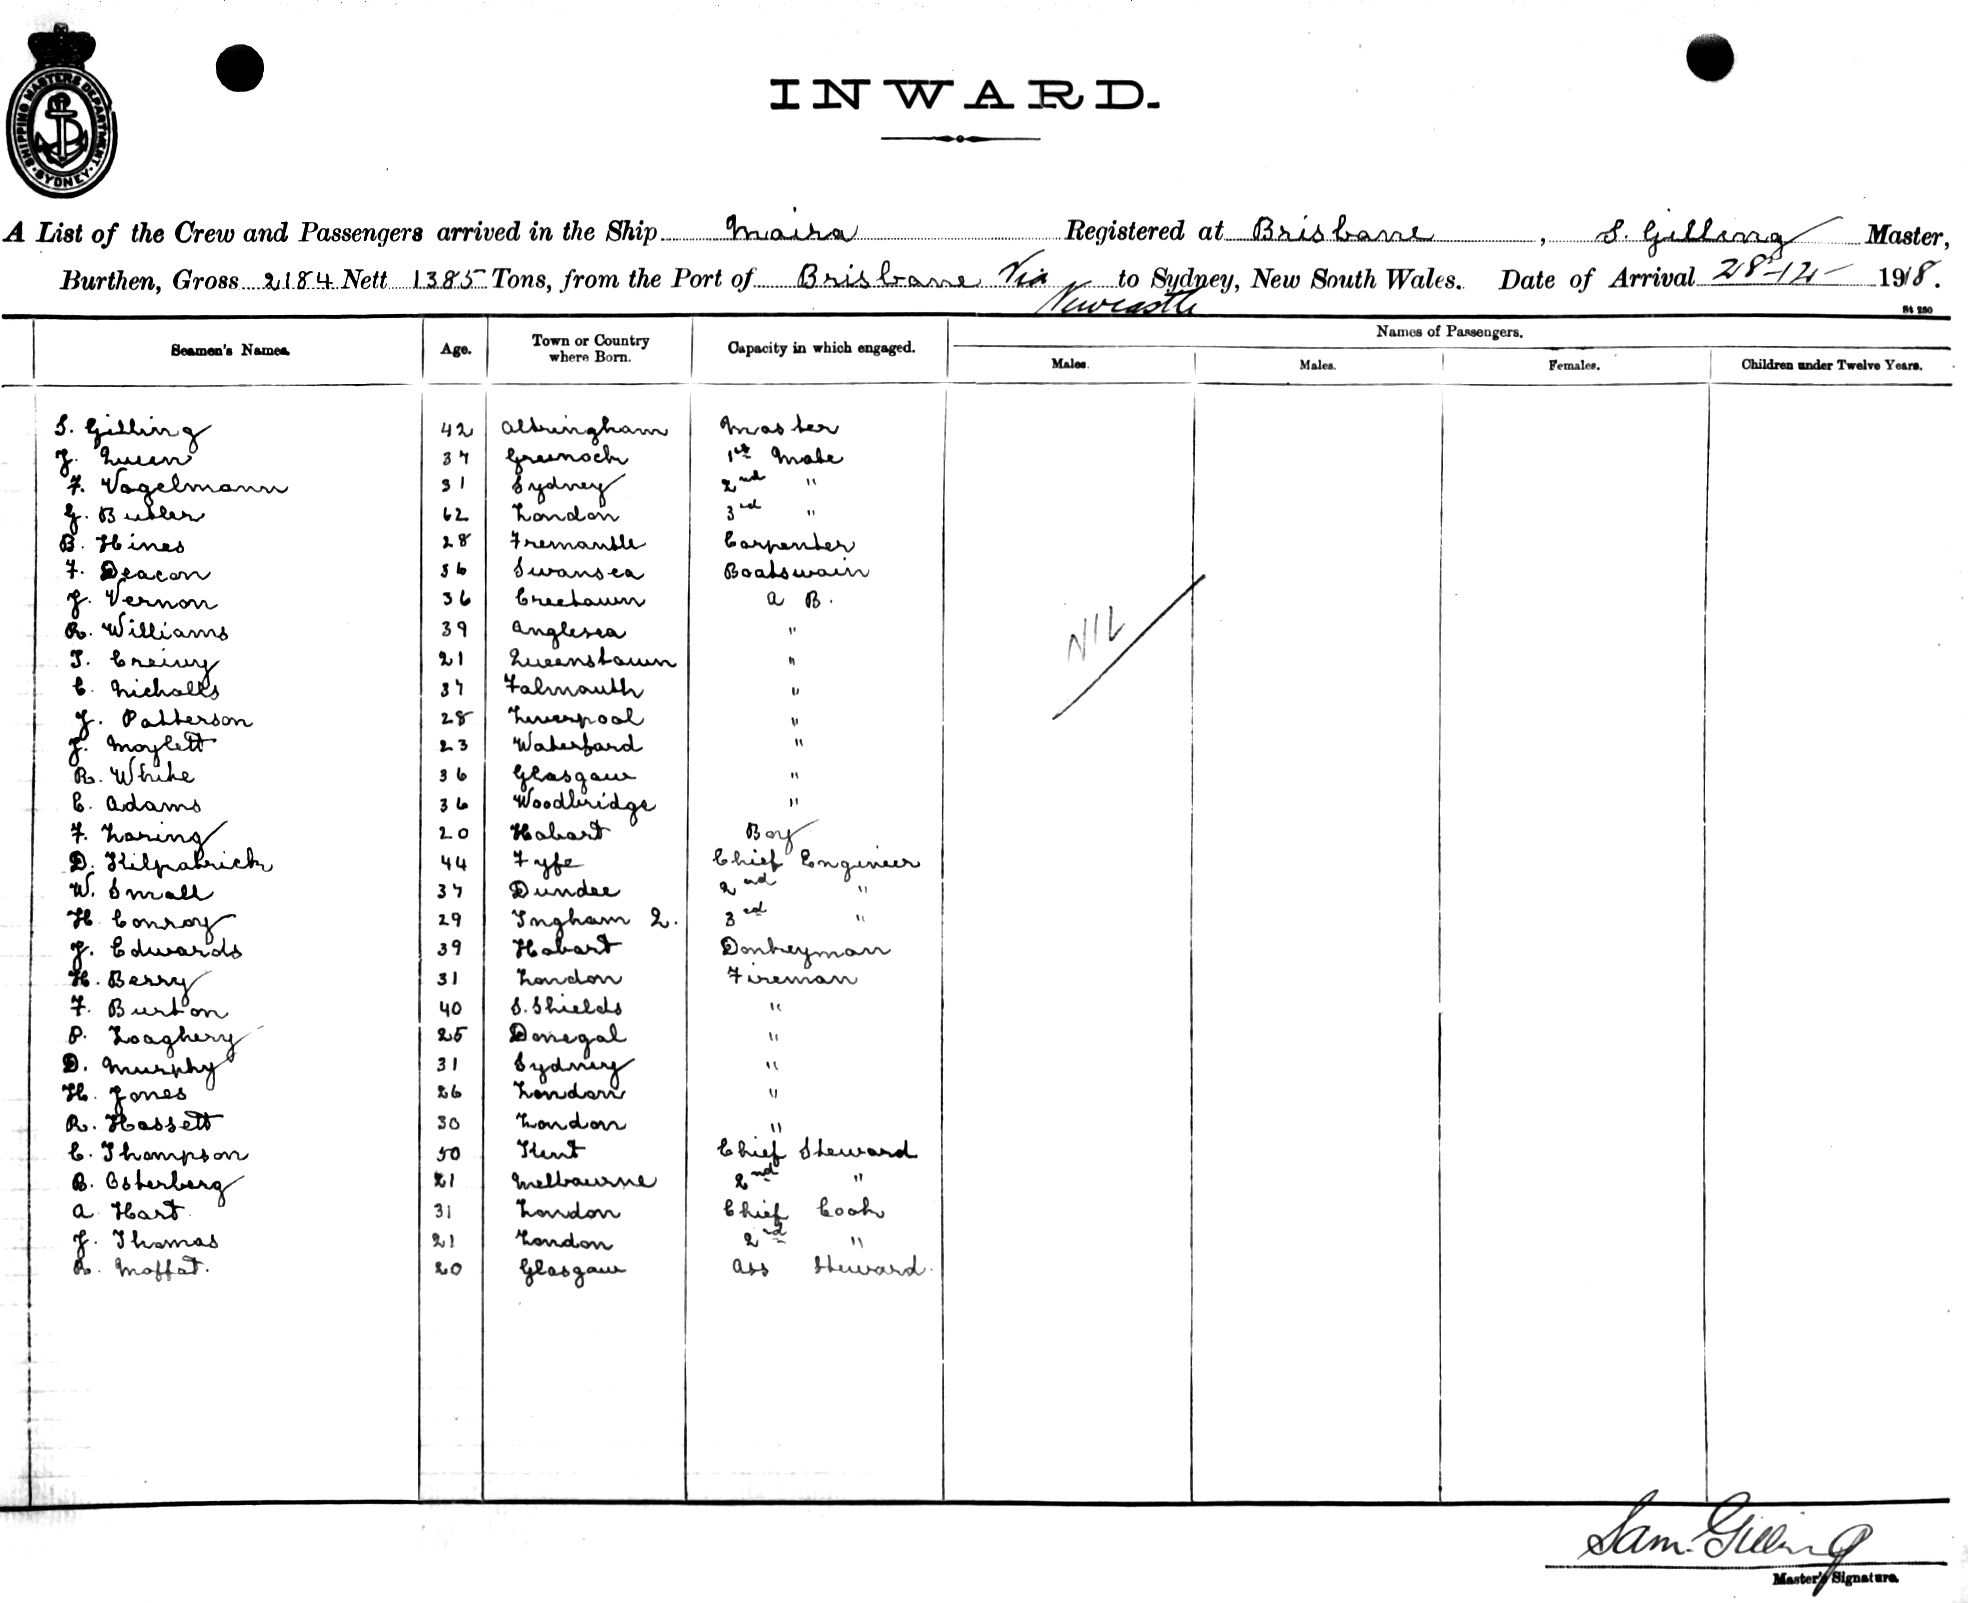 SHIPPING MASTERS DEPARTMENT
SYDNEY
INWARD.
A List of the Crew and Passengers arrived in the Ship Moira Registered at Brisbane, S. Gilling Master,
Burthen, Gross 2184 Nett 1385 Tons, from the Port of Brisbane Via Newcastle to Sydney, New South Wales. Date of Arrival 28-12- 1918.
St 280
Seamen's Names. Age. Town or Country where Born. Capacity in which engaged. Names of Passengers.
Males. Males. Females. Children under Twelve Years.
S. Gilling 42 Altringham Master
J. Queen 37 Greenock 1st Mate
F. Vogelmann 31 Sydney 2nd "
G. Butler 62 London 3rd "
B. Hines 28 Fremantle Carpenter
F. Deacon 36 Swansea Boatswain
J. Vernon 36 Creetown A B.
R. Williams 39 Anglesea "
T. 21 Queenstown "
C. Nicholls 37 Falmouth "
J. Patterson 28 Liverpool "
J. Moylett 23 Waterford "
R. White 36 Glasgow "
C. Adams 36 Woodbridge "
F. Loring 20 Hobart Boy
D. Kilpatrick 44 Fyfe Chief Engineer
W. Small 37 Dundee 2nd "
H. Conroy 29 Ingham Q. 3rd "
J. Edwards 39 Hobart Donkeyman
H. Berry 31 London Fireman
F. Burton 40 S. Shields "
P. Loaghery 25 Donegal "
D. Murphy 31 Sydney "
H. Jones 26 London "
R. Hassett 30 London "
C. Thompson 50 Kent Chief Steward
B. Osterberg 21 Melbourne 2nd "
A Hart 31 London Chief Cook
J. Thomas 21 London 2nd "
R. Moffat. 20 Glasgow Ass Steward.
NIL
Sam. Gilling
Master's Signature.